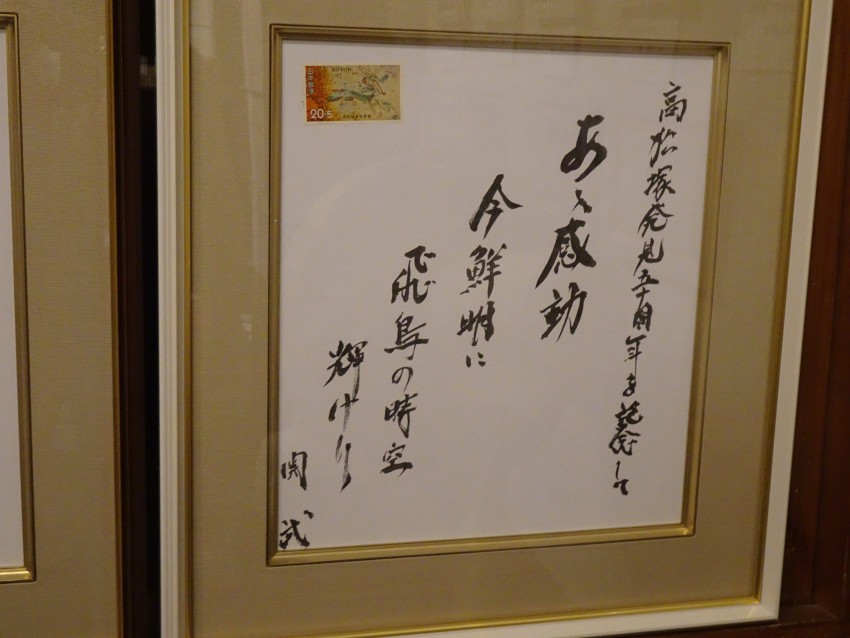 高松塚発見五十周年を記念して
あゝ感動
今鮮明に
飛鳥の時空
輝けり
関武
日本郵便
20+5